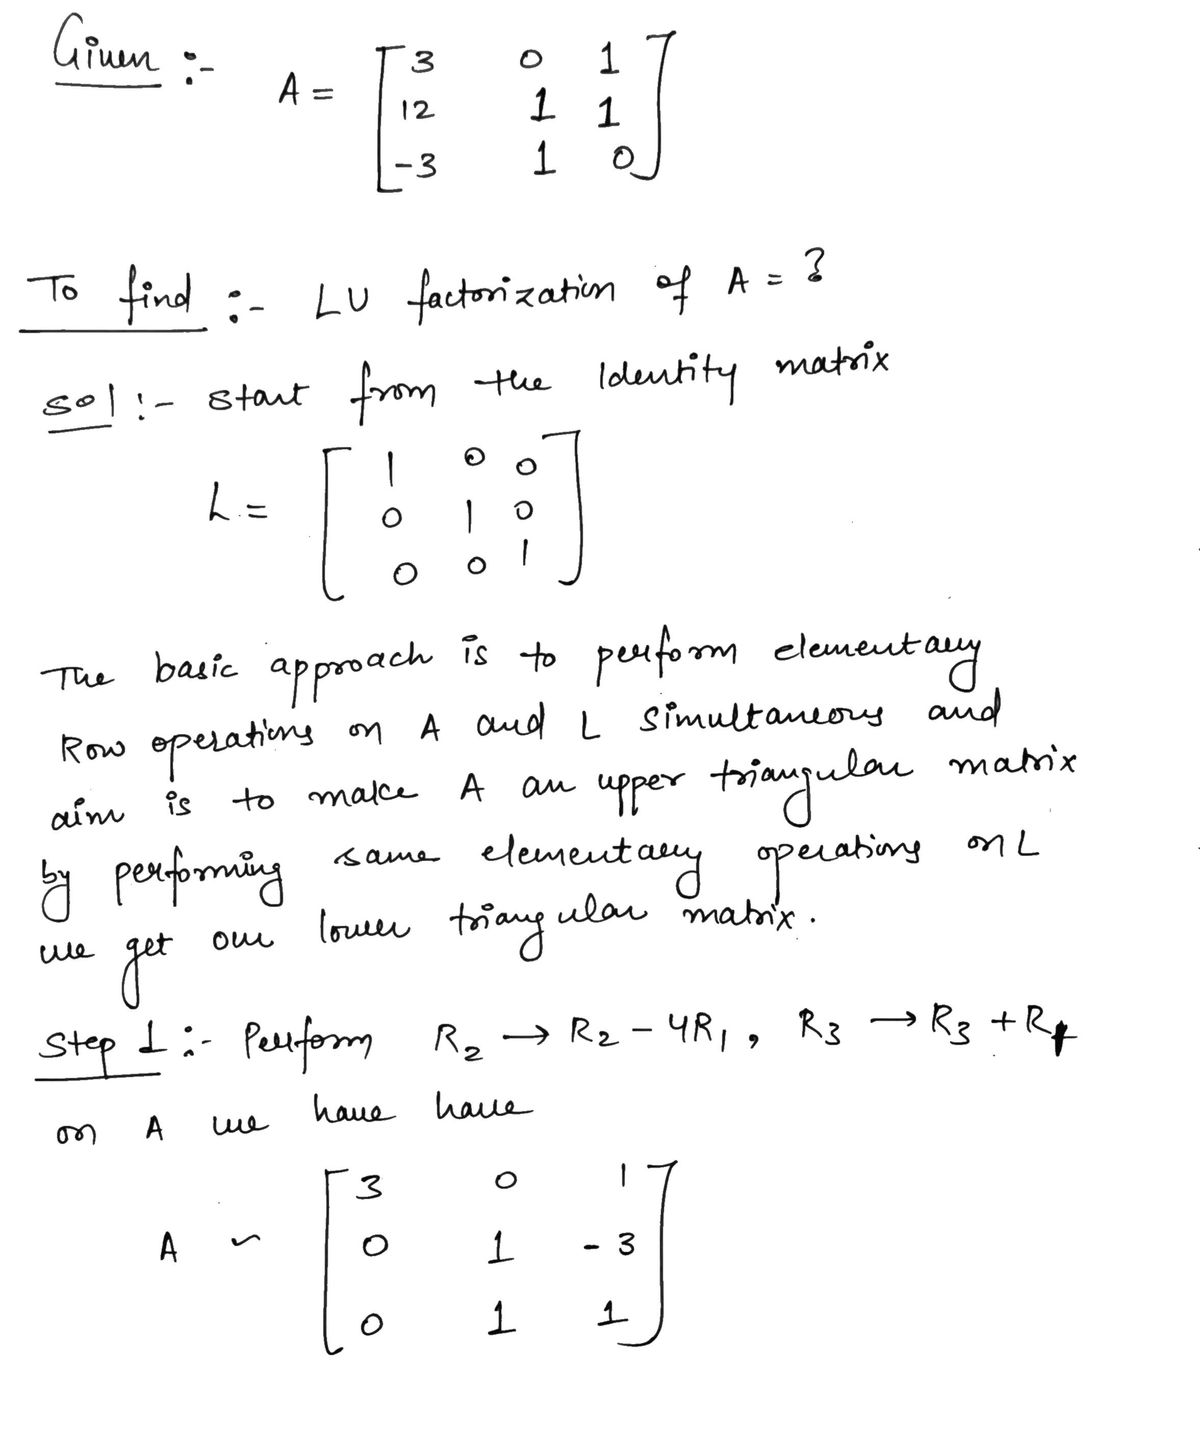 Given :-
A = [ 3 0 1
12 1 1
-3 1 0 ]
To find :- LU factorization of A = ?
sol :- start from the Identity matrix
L = [ 1 0 0
0 1 0
0 0 1 ]
The basic approach is to perform elementary
Row operations on A and L simultaneous and
aim is to make A an upper triangular matrix
by performing same elementary operations on L
we get our lower triangular matrix.
Step 1 :- Perform R2 → R2 - 4R1, R3 → R3 + R1
on A we have have
A ~ [ 3 0 1
0 1 -3
0 1 1 ]